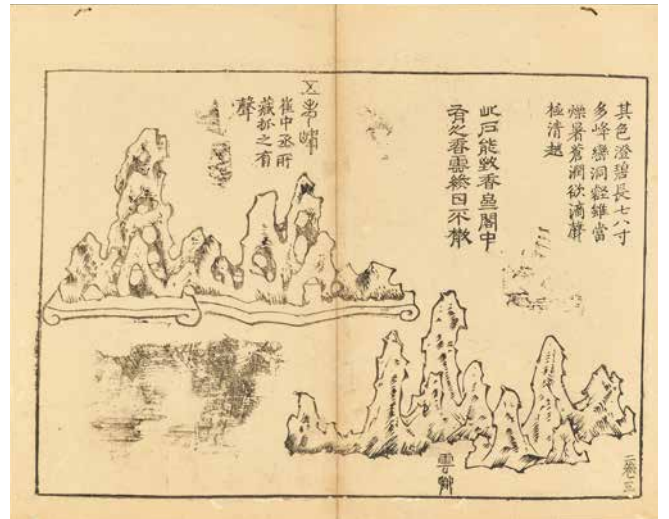 其色澄碧長七八寸
多峰巒洞壑雖當
爍暑蒼潤欲滴聲
極清越
此石能致香齋閣中
有之香雲終日不散
五老峰
崔中丞所
藏扣之有
聲